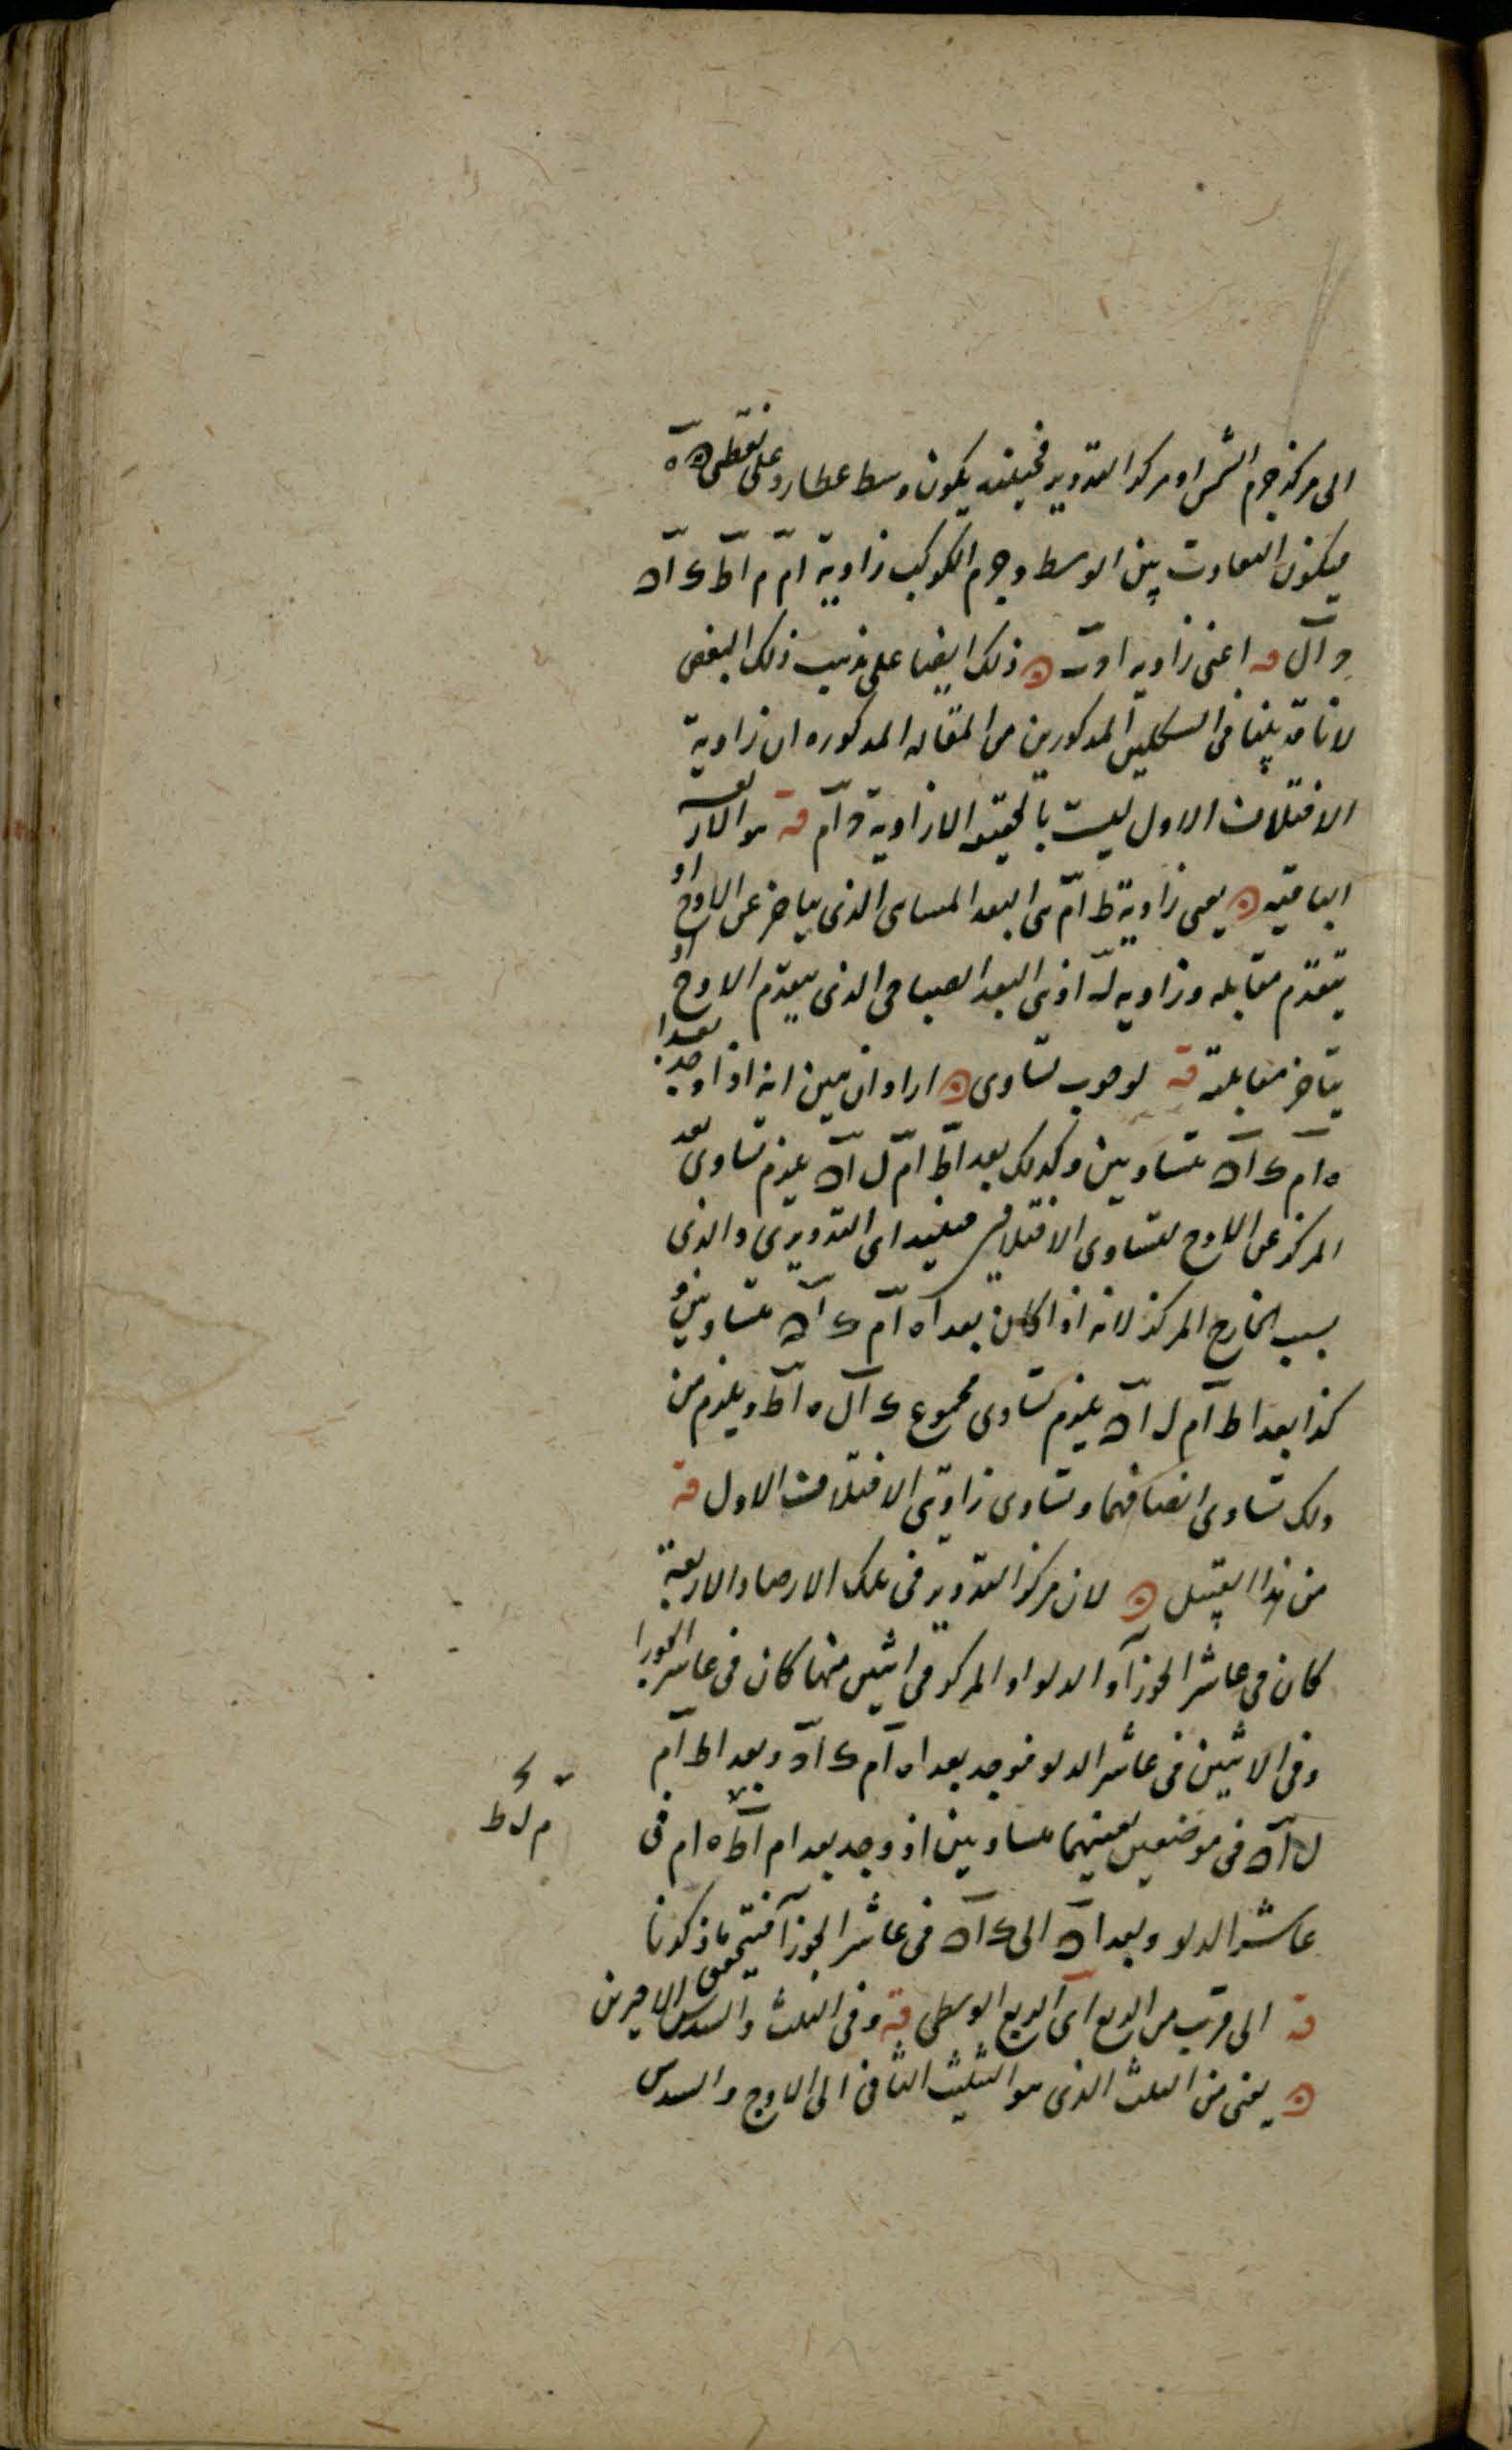 الى مركز جرم الشمس او مركز التدوير فحينئذ يكون وسط عطارد على نقطى ه ه
فيكون التفاوت بين الوسط وجرم الكوكب زاوية ام م اط ك اه
و ال قه اعنى زاوية ا ذلك ايضا على مذهب ذلك البعض
لانا قد بينا فى الشكلين المذكورين من المقاله المذكوره ان زاوية
الاختلاف الاول ليست بالحقيقه الا زاوية د ام قه هو
الباقيه يعنى زاوية ط ام هى البعد المسائى الذى يتاخر عن الاوج او
يتقدم مقابله وزاوية ل اه هى البعد الصباحى الذى يتقدم الاوج او
يتاخر مقابله قه لوجوب تساوى اراد ان يبين انه اذا وجد بعدا
ه ام ك اه متساويين وكذلك بعد اط ام ل اه يلزم تساوى بعد
المركز عن الاوج لتساوى الاختلافين حينئذ اى التدويرى والذى
بسبب الخارج المركز لانه اذا كان بعد اه ام ك اه متساويين و
كذا بعد اط ام ل اه يلزم تساوى مجموع ك ال ه اط ويلزم من
ذلك تساوى انصافهما وتساوى زاويتى الاختلاف الاول قه
من هذا القبيل لان مركز التدوير فى تلك الارصاد الاربعة
كان فى عاشر الجوزآ والدلو او المركز فى اثنين منها كان فى عاشر الجوزا
وفى الاثنين فى عاشر الدلو فوجد بعد اه ام ك اه وبعد اط ام
ل اه فى موضعين بعينهما متساويين اذ وجد بعد ام اط ه ام فى
م ل ط
عاشر الدلو وبعد اه الى ك اه فى عاشر الجوزآ فيتحقق ما ذكرنا
قه الى قرب من الربع اى الربع الوسطى قه وفى الثلث والسدس الاخيرين
يعنى من الثلث الذى هو التثليث الثانى الى الاوج والسدس